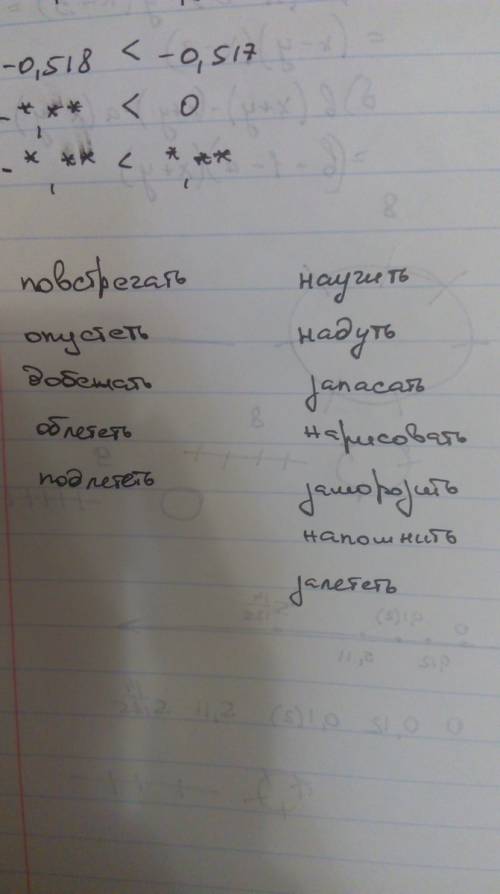 -0,518 < -0,517
-*,** < 0
-*,** < *,**
повстречать научить
опустеть надуть
добежать запасать
облететь нарисовать
подлететь заморозить
напомнить
залететь